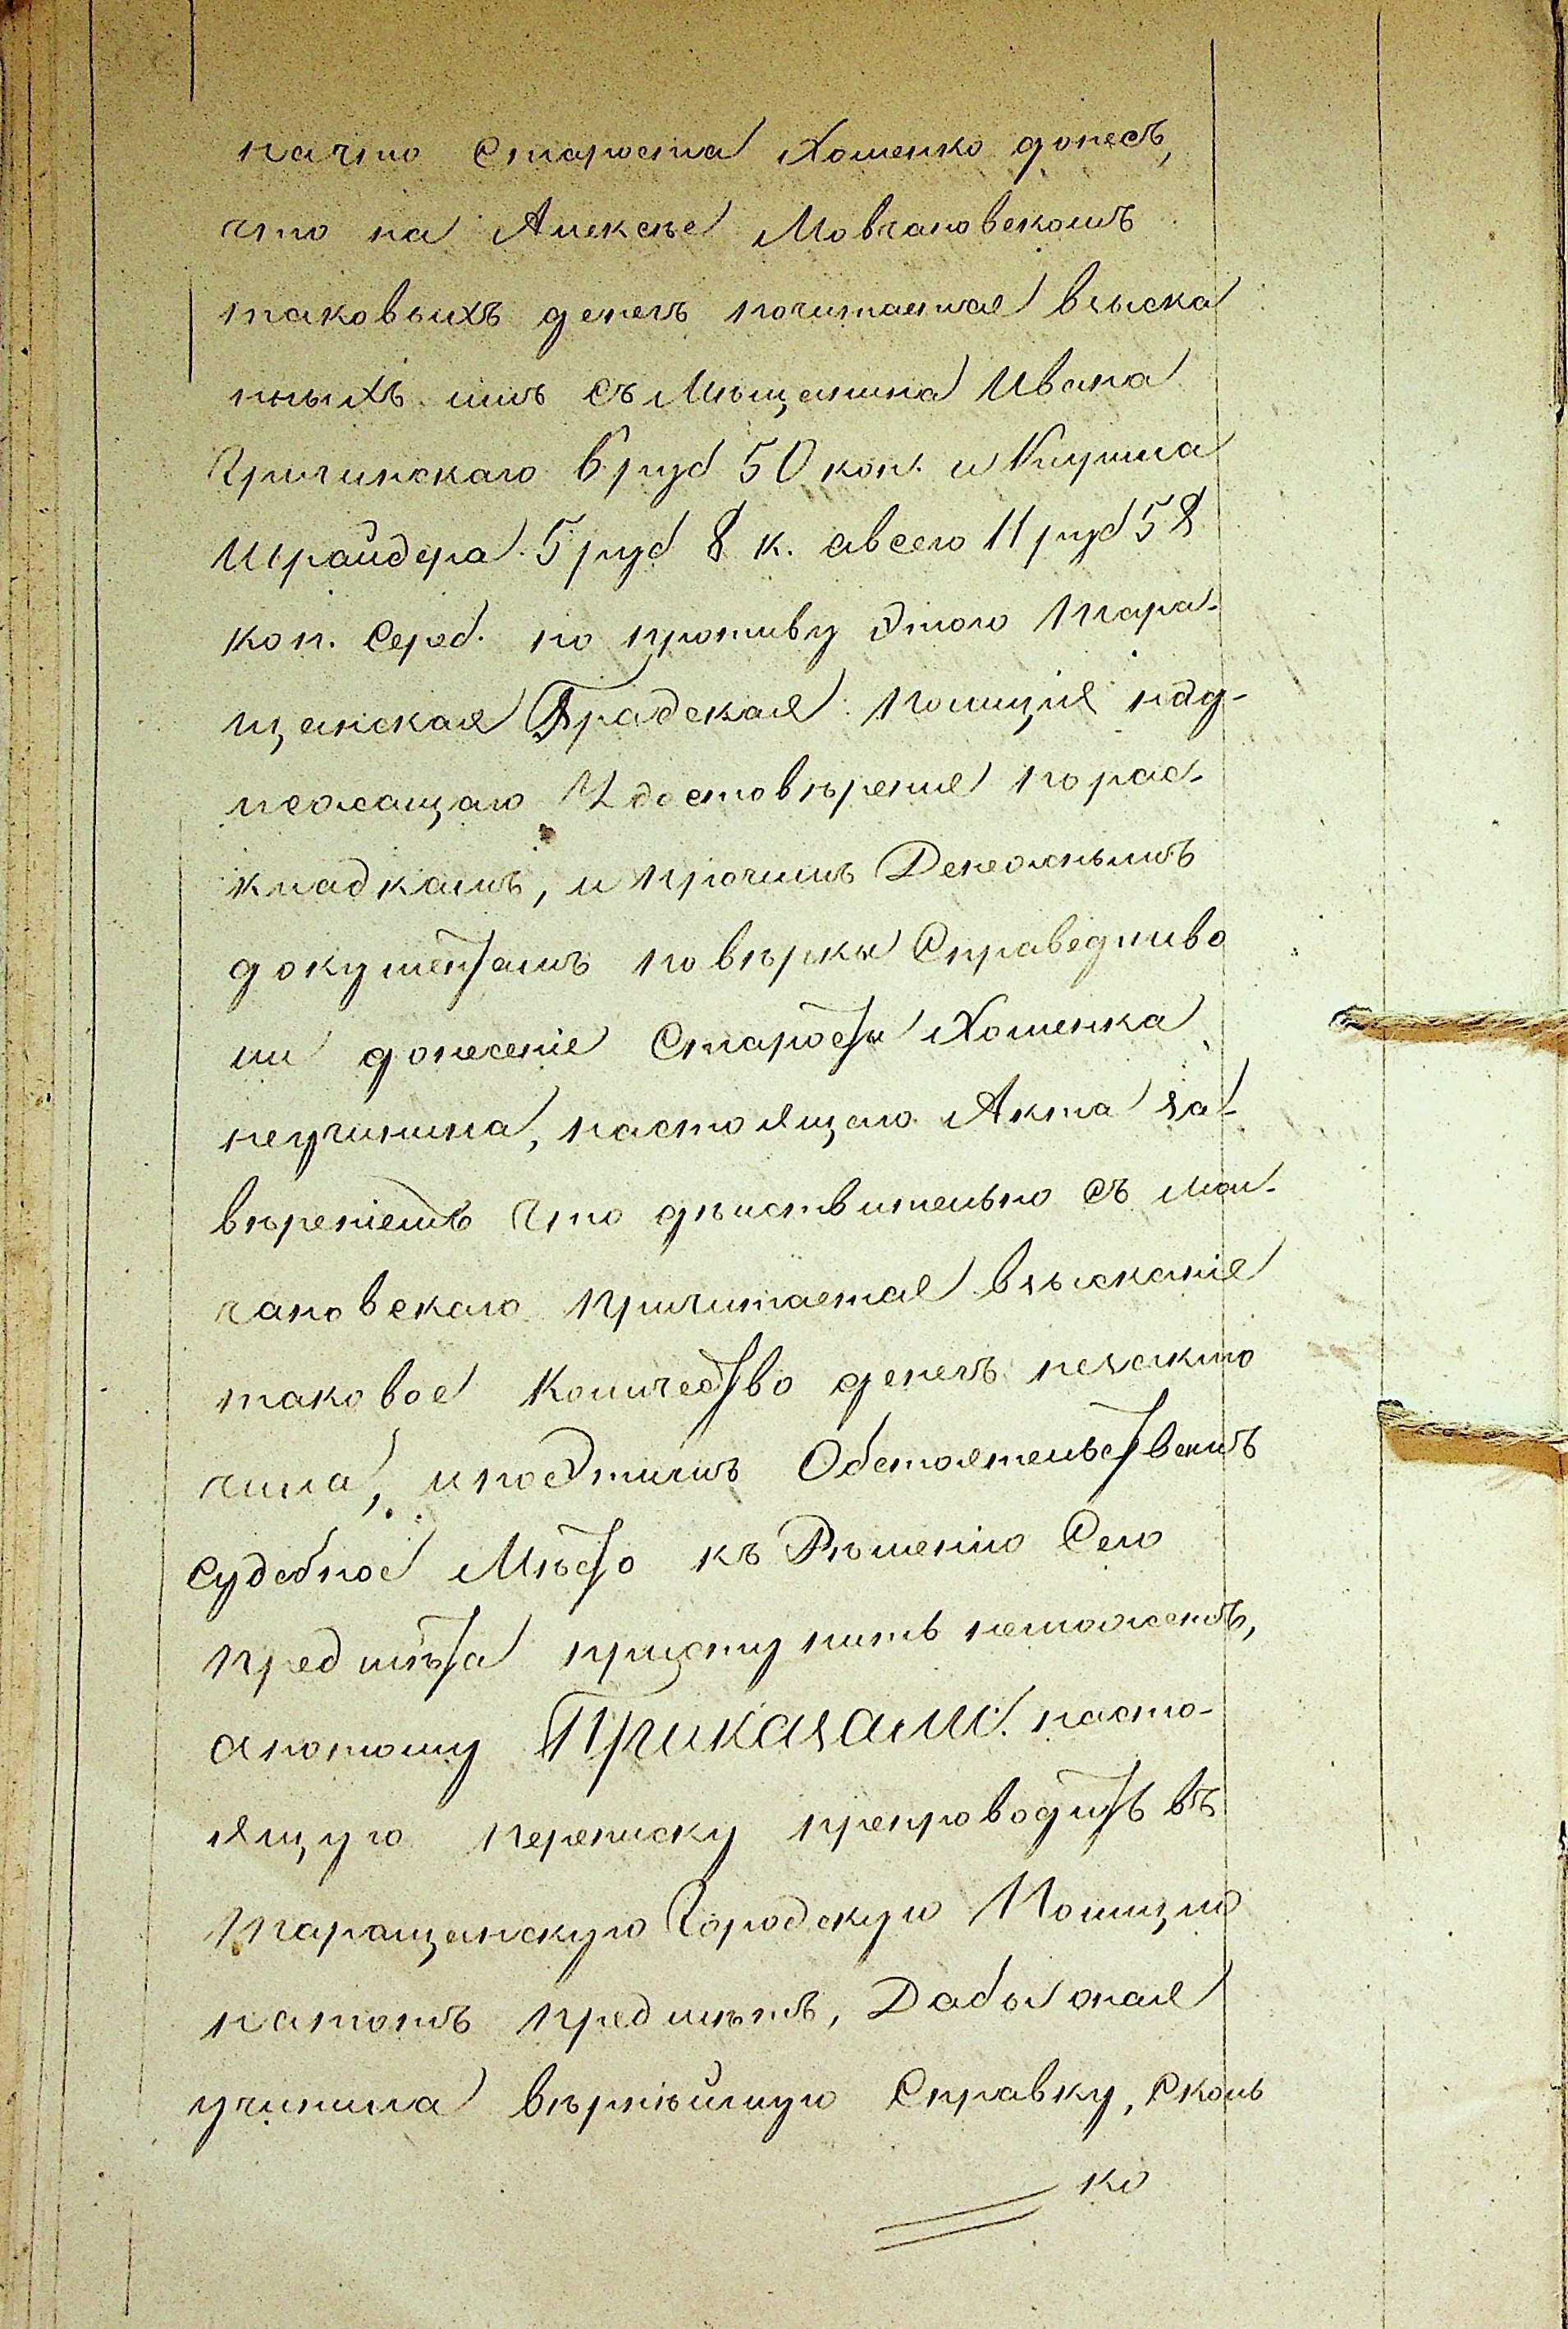 начто Староста Хоменко донесъ,
что на Алексѣе Мовчановскомъ
таковыхъ денегъ почитается взыска
нныхъ имъ съ Мѣщанина Ивана
Гричинскаго 6 руб 50 коп. и Купца
Шрайдера 5 руб 8 к. авсего 11 руб 58
коп. Сереб. но противу Этого Тара-
щанская Градская Полиція над-
лежащаго Удостовѣренія порас-
кладкамъ, и прочимъ Денежнымъ
документамъ повѣрки Справедливо
ли донесеніе Старосты Хоменка
неучинила, настоящаго Акта за-
вѣреніемъ что дѣйствительно съ Мол-
чановскаго Причитается взысканіе
таковое Количество денегъ незаклю
чила, и поЭтимъ Обстоятельствамъ
Судебное Мѣсто къ Рѣшенію Сего
предмѣта приступить неможетъ,
апотому Приказали: насто-
ящую переписку препроводить въ
Таращанскую Городскую Полицію
натотъ предмѣтъ, Дабы оная
учинила вѣрнѣйшую Справку, Сколь
ко